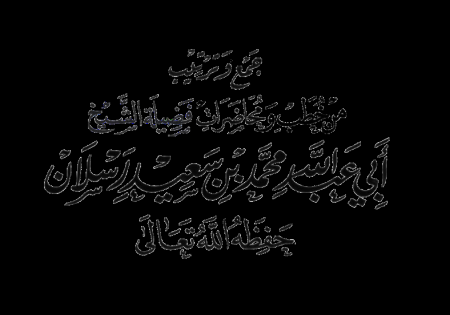 جَمْعُ وَتَرْتِيْبُ
مِنْ خُطَبِ وَمُحَاضَرَاتِ فَضِيلَةِ الشَّيْخِ
أَبِي عَبْدِ اللَّهِ مُحَمَّدِ بْنِ سَعِيْدِ رَسْلَانَ
حَفِظَهُ اللَّهُ تَعَالَى